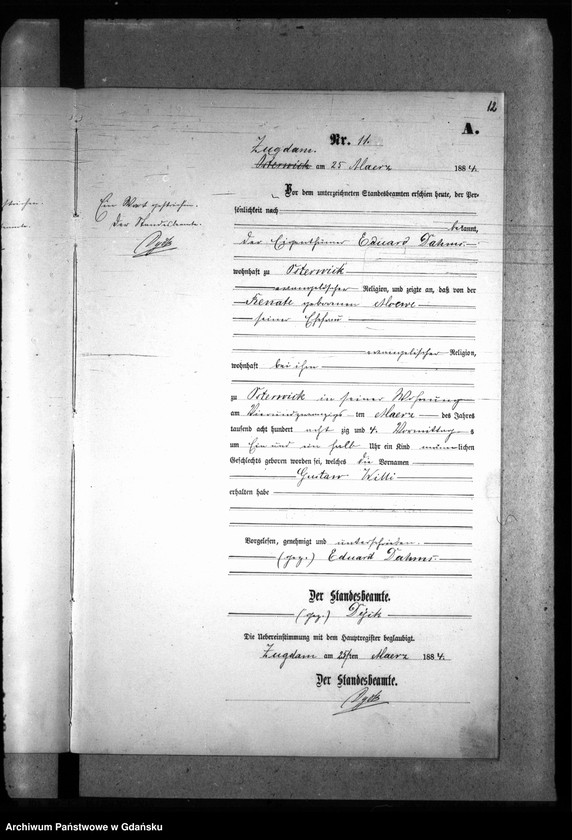 12
A.
Nr. 11.
Zugdam.
Osterwick am 25 Maerz 1884.
Ein Wort gestrichen.
Der Standesbeamte.
Vor dem unterzeichneten Standesbeamten erschien heute, der Per-
sönlichkeit nach
bekannt,
der Eigenthümer Eduard Dahms
wohnhaft zu Osterwick
evangelischer Religion, und zeigte an, daß von der
Renate geborenen Moewe
seiner Ehefrau
evangelischer Religion,
wohnhaft bei ihm
zu Osterwick in seiner Wohnung
am Vierundzwanzigsten Maerz des Jahres
tausend acht hundert achtzig und 4. Vormittags
um Ein und ein halb Uhr ein Kind männlichen
Geschlechts geboren worden sei, welches die Vornamen
Gustav Willi
erhalten habe
Vorgelesen, genehmigt und unterschrieben.
(gez.) Eduard Dahms.
Der Standesbeamte.
(gez.)
Die Uebereinstimmung mit dem Hauptregister beglaubigt.
Zugdam am 25ten Maerz 1884.
Der Standesbeamte.
Archiwum Państwowe w Gdańsku